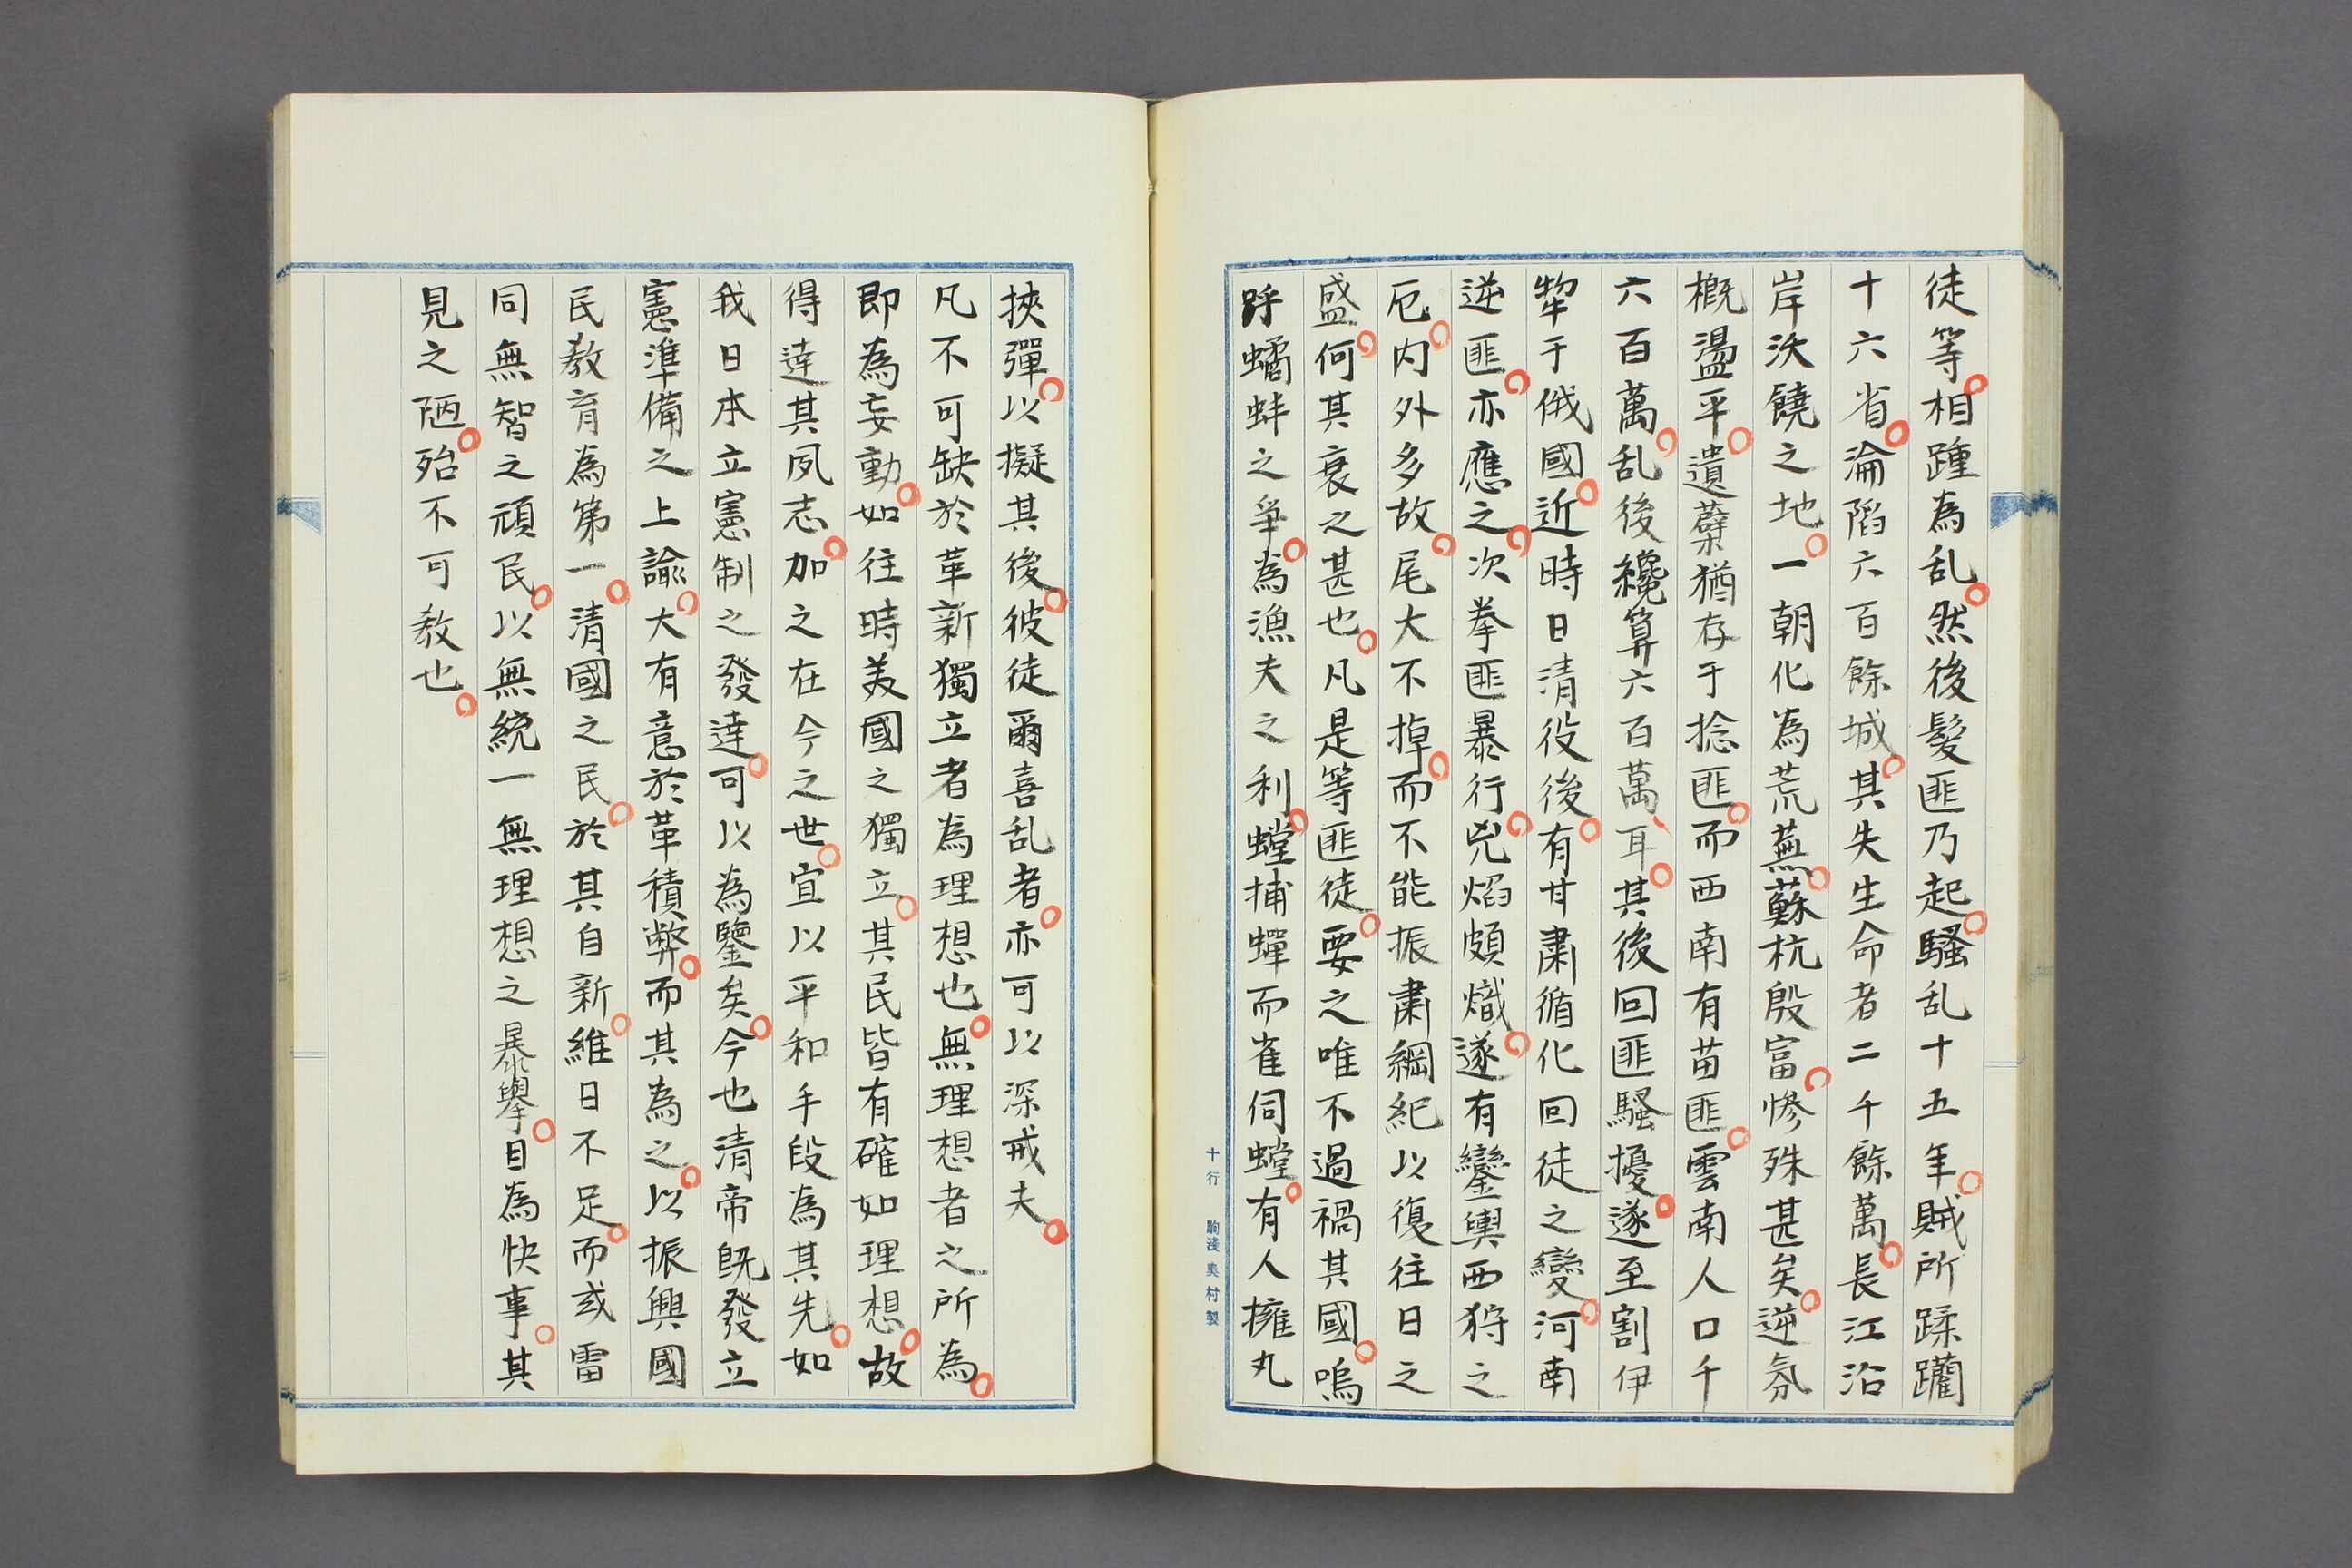 徒等。相踵為乱。然後髮匪乃起。騷乱十五年。賊所蹂躪
十六省。淪陷六百餘城。其失生命者二千餘萬。長江沿
岸沃饒之地。一朝化為荒蕪。蘇杭殷富。慘殊甚矣。逆氛
概盪平。遺蘖猶存于捻匪。而西南有苗匪。雲南人口千
六百萬。乱後纔算六百萬耳。其後回匪騷擾。遂至割伊
犂于俄國。近時日清役後。有甘肅循化回徒之變。河南
逆匪。亦應之。次拳匪暴行。兇焰頗熾。遂有鑾輿西狩之
厄。内外多故。尾大不掉。而不能振肅綱紀以復往日之
盛。何其衰之甚也。凡是等匪徒。要之唯不過禍其國。嗚
呼蟠蚌之爭。為漁夫之利。螳捕蟬而雀伺螳。有人擁丸
十行 駒淺奥村製
挾彈。以擬其後。彼徒爾喜乱者。亦可以深戒夫。
凡不可缺於革新獨立者為理想也。無理想者之所為。
即為妄動。如往時美國之獨立。其民皆有確如理想。故
得達其夙志。加之在今之世。宜以平和手段為其先。如
我日本立憲制之發達。可以為鑒矣。今也清帝既發立
憲準備之上諭。大有意於革積弊。而其為之。以振興國
民教育為第一。清國之民。於其自新。維日不足。而或雷
同無智之頑民。以無統一無理想之暴舉。目為快事。其
見之陋。殆不可教也。